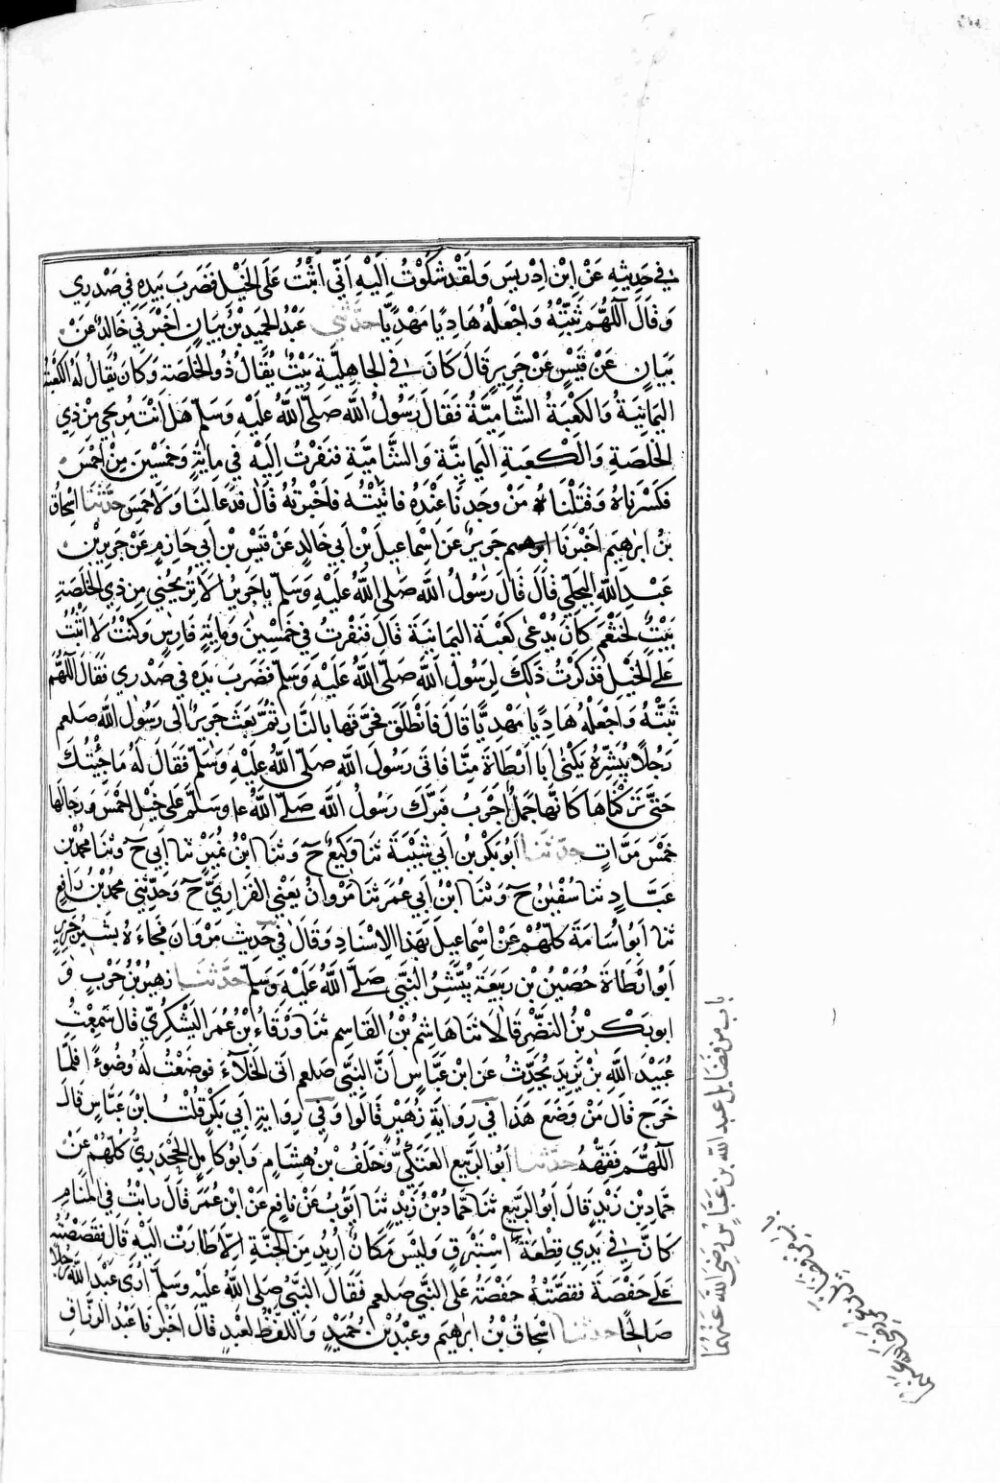 في حَدِيثِهِ عَنْ ابْنِ اِدْرِيسَ وَلَقَدْ شَكَوْتُ اِلَيْهِ اَنّي اَثْبُتُ عَلَى الخَيْلِ فَضَرَبَ بِيَدِهِ فِي صَدْرِي
وَقَالَ اَللّٰهُمَّ ثَبِّتْهُ وَاجْعَلْهُ هَادِيًا مَهْدِيًّا حدّثني عَبْدُ الحَمِيدِ بْنُ بَيَانٍ اَخْبَرَنِي خَالِدٌ عَنْ
بَيَانٍ عَنْ قَيْسٍ عَنْ جَرِيرٍ قَالَ كَانَ فِي الجَاهِلِيَّةِ بَيْتٌ يُقَالُ ذُو الخَلَصَةِ وَكَانَ يُقَالُ لَهُ الكَعْبَةُ
اليَمَانِيَةُ وَالكَعْبَةُ الشَّامِيَّةُ فَقَالَ رَسُولُ اللّٰهِ صَلَّى اللّٰهُ عَلَيْهِ وَسَلَّمَ هَلْ اَنْتَ مُرِيحِي مِنْ ذِي
الخَلَصَةِ وَالْكَعْبَةِ اليَمَانِيَّةِ وَالشَّامِيَّةِ فَنَفَرْتُ اِلَيْهِ فِي مِايَةٍ وَخَمْسِينَ مِنْ اَحْمَسَ
فَكَسَرْنَاهُ وَقَتَلْنَا مَنْ وَجَدْنَا عِنْدَهُ فَاتَيْتُهُ فَاَخْبَرْتُهُ قَالَ فَدَعَا لَنَا وَلاَحْمَسَ حَدَّثَنَا اِسْحَاقُ
بْنُ ابرهِيمَ اَخْبَرَنَا جَرِيرٌ عَنْ اِسْمَاعِيلَ بْنِ اَبِي خَالِدٍ عَنْ قَيْسِ بْنِ اَبِي حَازِمٍ عَنْ جَرِيرِ بْنِ
عَبْدِ اللّٰهِ البَجَلِيّ قَالَ قَالَ رَسُولُ اللّٰهِ صَلَّى اللّٰهُ عَلَيْهِ وَسَلَّمَ يا جَرِيرُ اَلاَ تُرِيحُنِي مِنْ ذِي الخَلَصَةِ
بَيْتٌ لِخَثْعَمَ كَانَ يُدْعَى كَعْبَةَ اليَمَانِيَةَ قَالَ فَنَفَرْتُ فِي خَمْسِينَ وَمِايَةِ فَارِسٍ وَكُنْتُ لاَ اَثْبُتُ
عَلَى الخَيْلِ فَذَكَرْتُ ذَلِكَ لِرَسُولِ اللّٰهِ صَلَّى اللّٰهُ عَلَيْهِ وَسَلَّمَ فَضَرَبَ يَدَهُ فِي صَدْرِي فَقَالَ اَللّٰهُمَّ
ثَبِّتْهُ وَاجْعَلْهُ هَادِيًا مَهْدِيًّا قَالَ فَانْطَلَقَ فَحَرَّقَهَا بِالنَّارِ ثُمَّ بَعَثَ جَرِيرٌ اِلَى رَسُولِ اللّٰهِ صلعم
رَجُلاً يُبَشِّرُهُ يُكْنَى اَبَا اَرْطَاةَ مِنَّا فَاَتَى رَسُولَ اللّٰهِ صَلَّى اللّٰهُ عَلَيْهِ وَسَلَّمَ فَقَالَ لَهُ مَا جِئْتُكَ
حَتَّى تَرَكْنَاهَا كَاَنَّهَا جَمَلٌ اَجْرَبُ فَبَرَّكَ رَسُولُ اللّٰهِ صَلَّى اللّٰهُ عليه وسَلَّمَ عَلَى خَيْلِ اَحْمَسَ وَرِجَالِهَا
خَمْسَ مَرَّاتٍ حدثنا اَبُو بَكْرِ بْنُ اَبِي شَيْبَةَ ثَنَا وَكِيعٌ ح وَثَنَا ابْنُ نُمَيْرٍ ثنا اَبِي ح وَثَنَا مُحَمَّدُ بْنُ
عَبَّادٍ ثَنَا سُفْيٰنُ ح وَثَنَا ابْنُ اَبِي عُمَرَ ثَنَا مَرْوَانُ يَعْنِي الفَزَارِيَّ ح وَحَدَّثَنِي مُحَمَّدُ بْنُ رَافِعٍ
ثَنَا اَبُو اُسَامَةَ كُلُّهُمْ عَنْ اِسْمَاعِيلَ بِهَذَا الاِسْنَادِ وَقَالَ فِي حَدِيثِ مَرْوَانَ فَجَاءَهُ بَشِيرُ جَرِيرٍ
اَبُو اَرْطَاةَ حُصَيْنُ بْنُ رَبِيعَةَ يُبَشِّرُ النَّبِيَّ صَلَّى اللّٰهُ عَلَيْهِ وَسَلَّمَ حَدَّثَنَا زُهَيْرُ بْنُ حَرْبٍ وَ
ابو بَكْرِ بْنُ النَّضْرِ قَالاَ ثنا هَاشِمُ بْنُ القَاسِمِ ثَنَا وَرْقَاءُ بْنُ عُمَرَ اليَشْكُرِيُّ قَالَ سَمِعْتُ
عُبَيْدَ اللّٰهِ بْنَ يَزِيدَ يُحَدِّثُ عَنِ ابْنِ عَبَّاسٍ اَنَّ النَّبِيَّ صلعم اَتَى الخَلاَءَ فَوَضَعْتُ لَهُ وَضُوءًا فَلَمَّا
خَرَجَ قَالَ مَنْ وَضَعَ هَذَا فِي رِوَايَةِ زُهَيْرٍ قَالُوا وَفِي رِوَايَةِ اَبِي بَكْرٍ قُلْتُ ابْنُ عَبَّاسٍ قَالَ
اَللّٰهُمَّ فَقِّهْهُ حدّثنا اَبُو الرَّبِيعِ العَتَكِيُّ وَخَلَفُ بْنُ هِشَامٍ وَاَبُو كَامِلٍ الجَحْدَرِيُّ كُلُّهُمْ عَنْ
حَمَّادِ بْنِ زَيْدٍ قَالَ اَبُو الرَّبِيعِ ثَنَا حَمَّادُ بْنُ زَيْدٍ ثَنَا اَيُّوبُ عَنْ نَافِعٍ عَنْ ابْنِ عُمَرَ قَالَ رَايْتُ فِي المَنَامِ
كَاَنَّ فِي يَدِي قِطْعَةَ اِسْتَبْرَقٍ وَلَيْسَ مَكَانٌ اُرِيدُ مِنَ الجَنَّةِ اِلاَّ طَارَتْ اِلَيْهِ قَالَ فَقَصَصْتُهُ
عَلَى حَفْصَةَ فَقَصَّتْهُ حَفْصَةُ عَلَى النَّبِيِّ صلعم فَقَالَ النَّبِيُّ صَلَّى اللّٰهُ عَلَيْهِ وَسَلَّمَ اَرَى عَبْدَ اللّٰهِ رَجُلاً
صَالِحًا حدثنا اِسْحَاقُ بْنُ ابرهِيمَ وَعَبْدُ بْنُ حُمَيْدٍ وَاللَّفْظُ لِعَبْدٍ قَالَ اَخْبَرَنَا عَبْدُ الرَّزَّاقِ
باب من فضايل عبد الله بن عَبَّاسٍ رَضِيَ اللهُ عَنْهُمَا